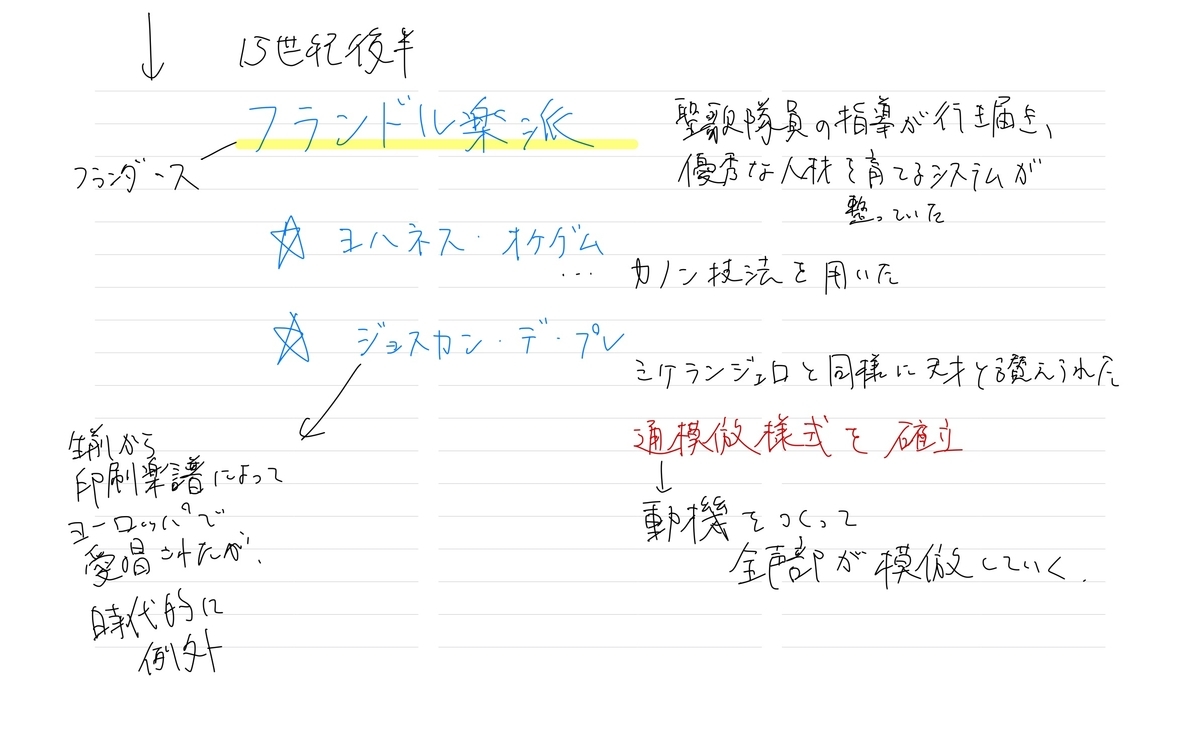 15世紀後半
フランドル楽派
フランダース
聖歌隊員の指導が行き届き、
優秀な人材を育てるシステムが
整っていた
☆ ヨハネス・オケゲム
… カノン技法を用いた
☆ ジョスカン・デ・プレ
ミケランジェロと同様に天才と讃えられた
通模倣様式を確立
動機をつくって
全声部が模倣していく.
生前から
印刷楽譜によって
ヨーロッパで
愛唱されたが、
時代的に
例外